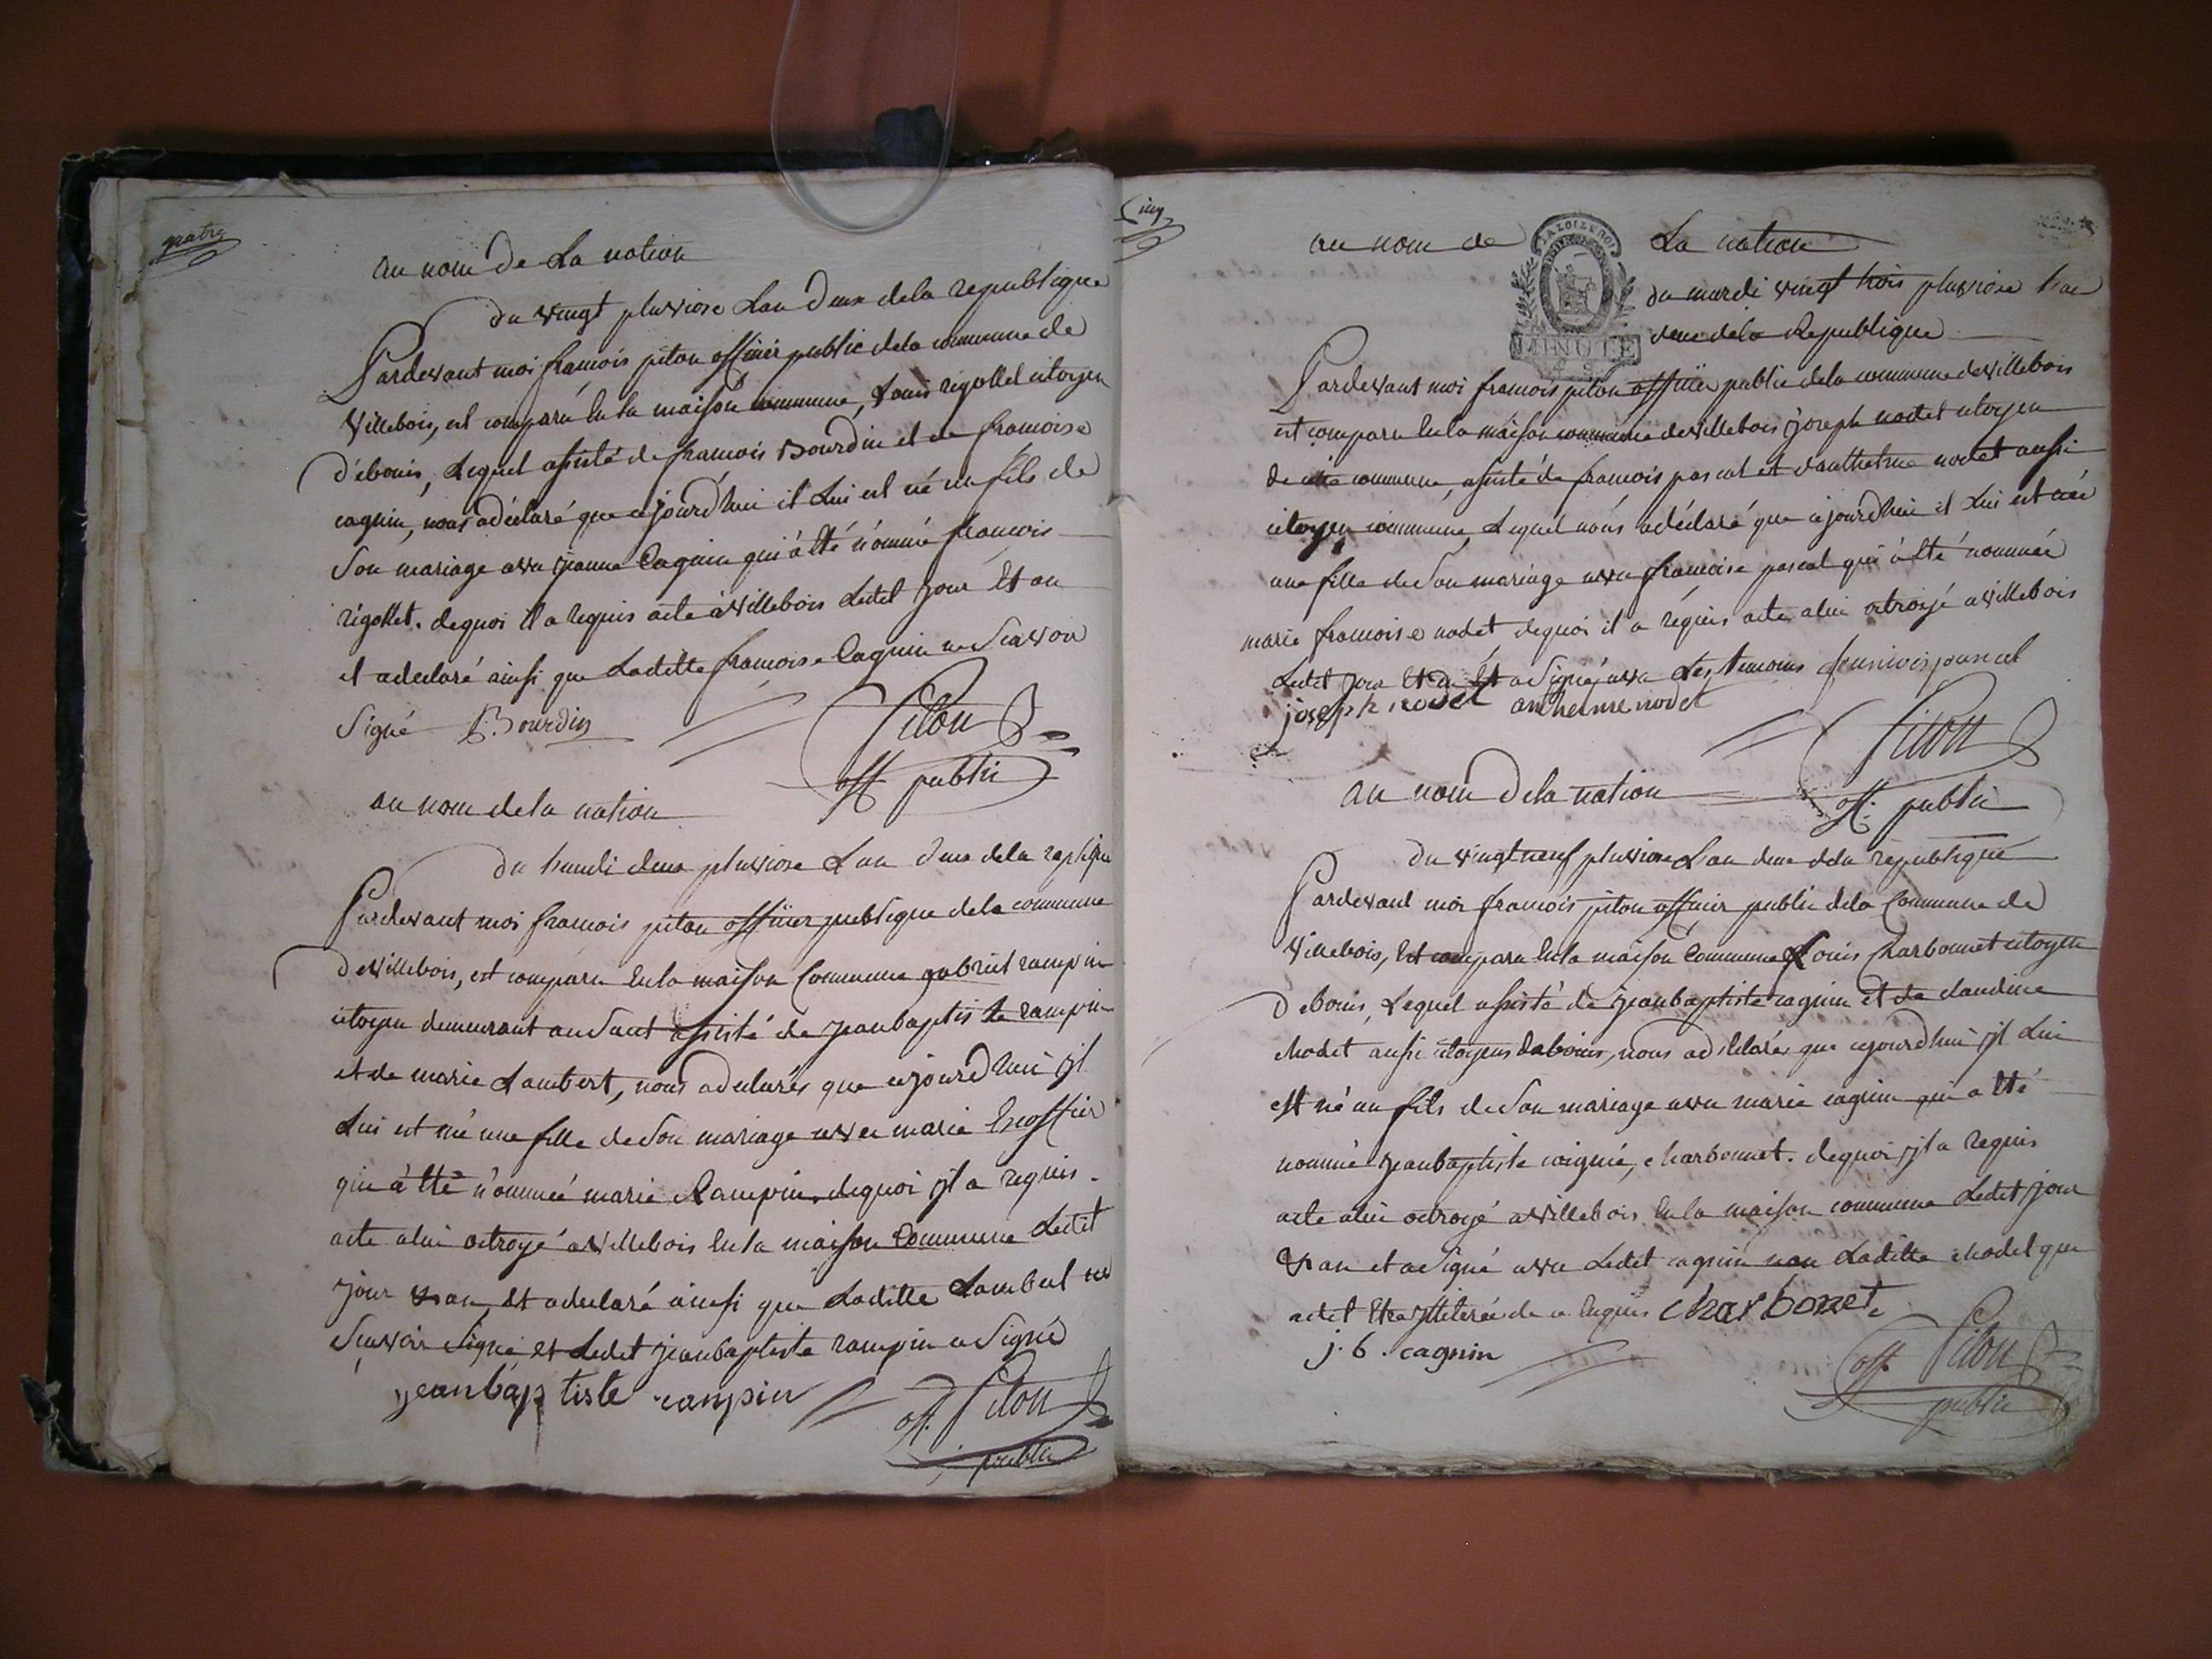 quatre
au nom de La nation
du vingt pluviose Lan deux dela republique
Pardevant moi francois piton officier public dela commune de
Villebois, est comparu En la maison commune, Louis rigollet citoyen
d'ebouis, Lequel assisté de francois Bourdin et de francoise
cagnin, nous adéclaré que cejourd'hui il Lui est né un fils de
Son mariage avec jeanne Cagnin qui à Eté nómmé francois
rigollet. dequoi il a requis acte à villebois Ledit jour Et an
et adeclaré ainsi que Laditte francoise Cagnin ne Scavoir
Signé Bourdin
Piton
off public
au nom dela nation
du deux pluviose Lan deux dela
Pardevant moi francois piton officier publique dela commune
devillebois, est comparu En la maison Commune gabriel rampin
citoyen demeurant ausaut assisté de jeanbaptiste rampin
et de marie Lambert, nous adeclarés que cejourd'hui jl
Lui est née une fille de Son mariage avec marie Escoffier
qui à Eté nómmeé marie Rampin. dequoi jl a requis.
acte alui octroyé avillebois En la maison Commune Ledit
jour & an, Et adeclaré ainsi que Laditte Lambert ne
Scavoir Signé et Ledit jeanbaptiste rampin a Signé
jeanbaptiste rampin
off. Piton
public
Cinq
au nom de La nation
LA LOI LE ROI
MINUTE
du mardi vingt trois pluviose Lan
deux dela Republique
Pardevant moi francois piton officier public dela commune devillebois
est comparu En la maison commune devillebois joseph nodet citoyen
de commune, assisté de francois pascal et d'anthelme nodet aussi
citoyen commune, Lequel nous adéclaré que cejourdhui il Lui est née
une fille de Son mariage avec francoise pascal qui à Eté nommée
marie francoise nodet dequoi il a réquis acte alui octroyé avillebois
Ledit jour Et an Et a Signé avec Les temoins francois pascal
joseph nodet anthelme nodet
Piton
off. public
au nom dela nation
du vingt neuf pluviose Lan deux dela republique
Pardevant moi francois piton officier public dela Commune de
Villebois, Est comparu En la maison Commune Louis Charbonnet citoyen
debouis, Lequel assisté de jeanbaptiste cagnin et de claudine
chodet aussi citoyens debouis, nous adéclarés que cejourdhui jl Lui
est né un fils de Son mariage avec marie cagnin qui a Eté
nommé jeanbaptiste charbonnet. dequoi jl a requis
acte alui octroyé avillebois En la maison commune Ledit jour
& an et a Signé avec Ledit cagnin non Laditte chodet qui
adit Etre jlliterée de ce Enquis charbonet
j. b. cagnin
off. Piton
public